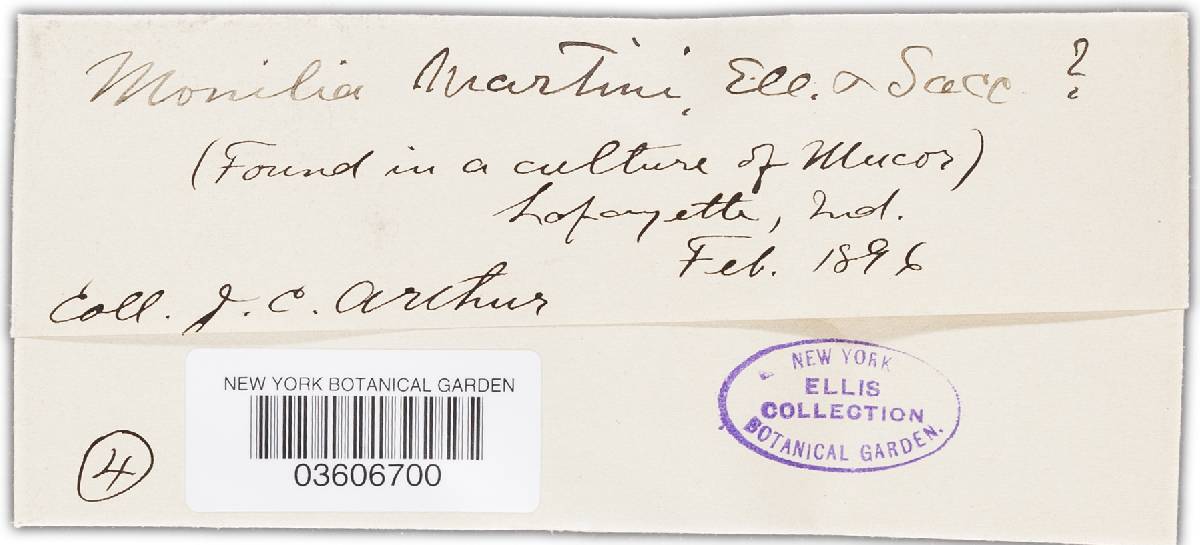 Monilia Martini, Ell. & Sacc ?
(Found in a culture of Mucor)
Lafayette, Ind.
Feb. 1896
Coll. J. C. Arthur
NEW YORK BOTANICAL GARDEN
03606700
4
NEW YORK
ELLIS
COLLECTION
BOTANICAL GARDEN.